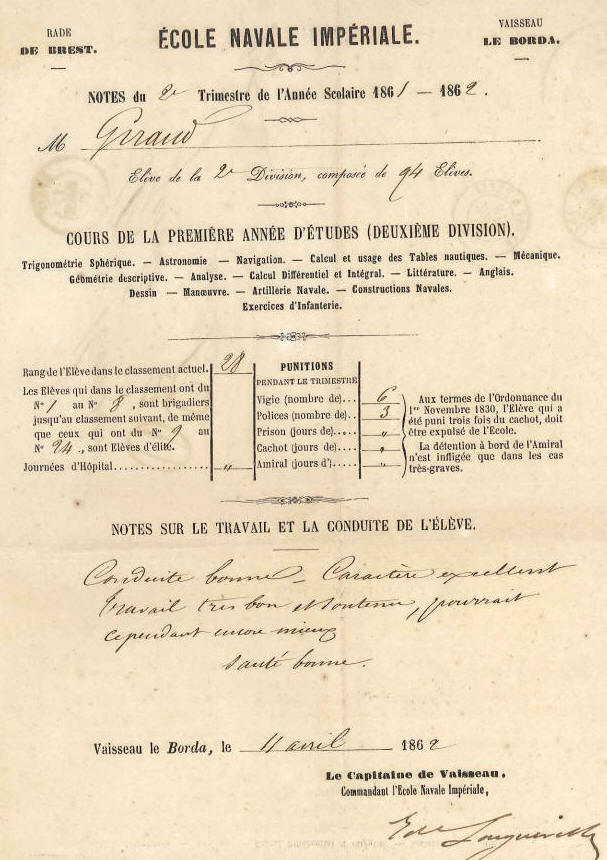 RADE
DE BREST.
ÉCOLE NAVALE IMPÉRIALE.
VAISSEAU
LE BORDA.
NOTES du 2e Trimestre de l'Année Scolaire 1861 — 1862.
M Giraud
Elève de la 2e Division, composée de 94 Elèves.
COURS DE LA PREMIÈRE ANNÉE D'ÉTUDES (DEUXIÈME DIVISION).
Trigonométrie Sphérique. — Astronomie — Navigation. — Calcul et usage des Tables nautiques. — Mécanique.
Géometrie descriptive. — Analyse. — Calcul Différentiel et Intégral. — Littérature. — Anglais.
Dessin — Manœuvre. — Artillerie Navale. — Constructions Navales.
Exercices d'Infanterie.
Rang de l'Elève dans le classement actuel. 28
Les Elèves qui dans le classement ont du
N° 1 au N° 8, sont brigadiers
jusqu'au classement suivant, de même
que ceux qui ont du N° 9 au
N° 24., sont Elèves d'élite.
Journées d'Hôpital.................. "
PUNITIONS
PENDANT LE TRIMESTRE
Vigie (nombre de)... 6
Polices (nombre de).. 3
Prison (jours de)..... "
Cachot (jours de).... "
Amiral (jours d')..... "
Aux termes de l'Ordonnance du
1er Novembre 1830, l'Elève qui a
été puni trois fois du cachot, doit
être expulsé de l'Ecole.
La détention à bord de l'Amiral
n'est infligée que dans les cas
très-graves.
NOTES SUR LE TRAVAIL ET LA CONDUITE DE L'ÉLÈVE.
Conduite bonne – Caractère excellent
travail très bon et soutenu, pourrait
cependant encore mieux
santé bonne.
Vaisseau le Borda, le 11 avril 1862
Le Capitaine de Vaisseau,
Commandant l'Ecole Navale Impériale,